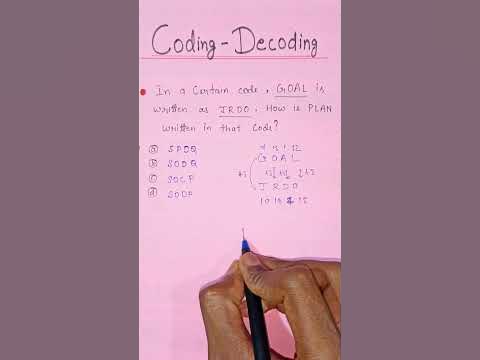 Coding - Decoding
In a Certain code, GOAL is
written as JRDO. How is PLAN
written in that Code?
a SPDQ
b SODQ
c SOCP
d SODP
15 1 12
G O A L
+3
J R D O
10 18 4 15